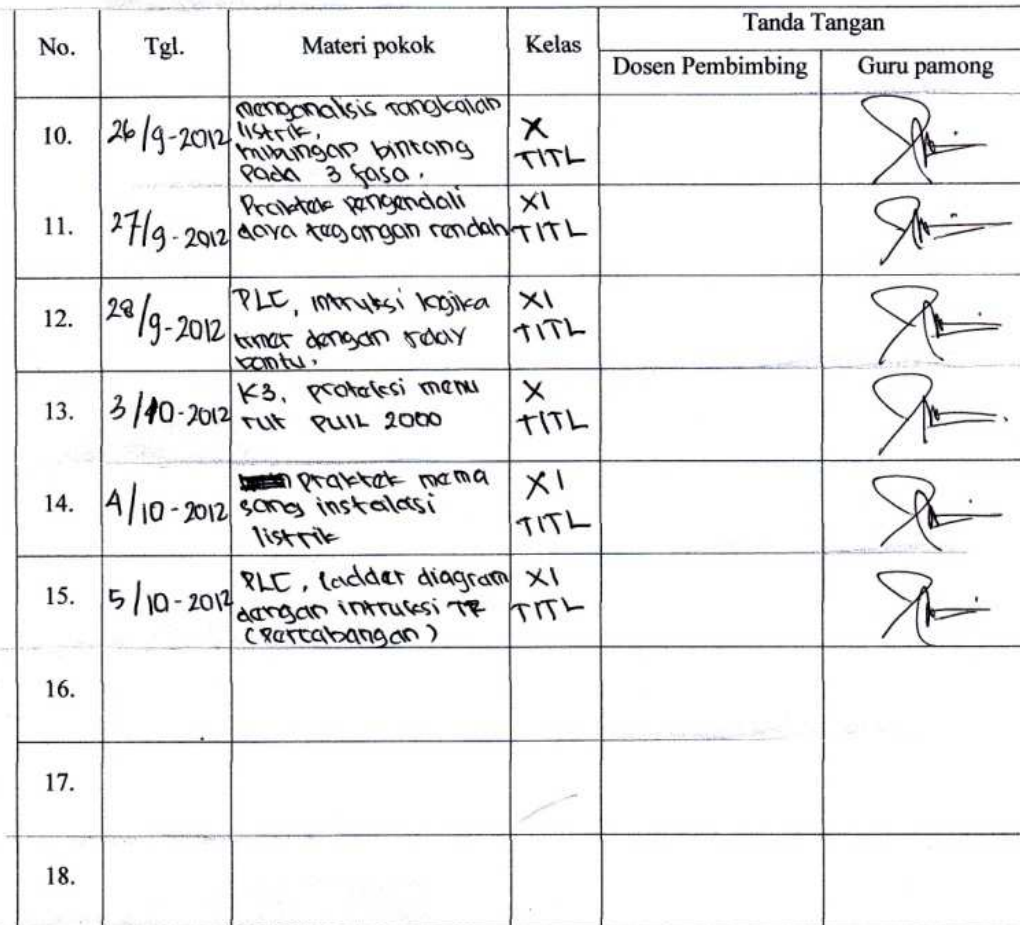 No. Tgl. Materi pokok Kelas Tanda Tangan
Dosen Pembimbing Guru pamong
10. 26/9-2012 menganalisis rangkaian
listrik,
hubungan bintang
pada 3 fasa.
X
TITL
11. 27/9-2012 Praktek pengendali
daya tegangan rendah
XI
TITL
12. 28/9-2012 PLC, intruksi logika
timer dengan relay
bantu.
XI
TITL
13. 3/10-2012 K3, proteksi menu
rut PUIL 2000
X
TITL
14. 4/10-2012 praktek mema
sang instalasi
listrik
XI
TITL
15. 5/10-2012 PLC, ladder diagram
dengan intruksi TR
(Percabangan)
XI
TITL
16.
17.
18.